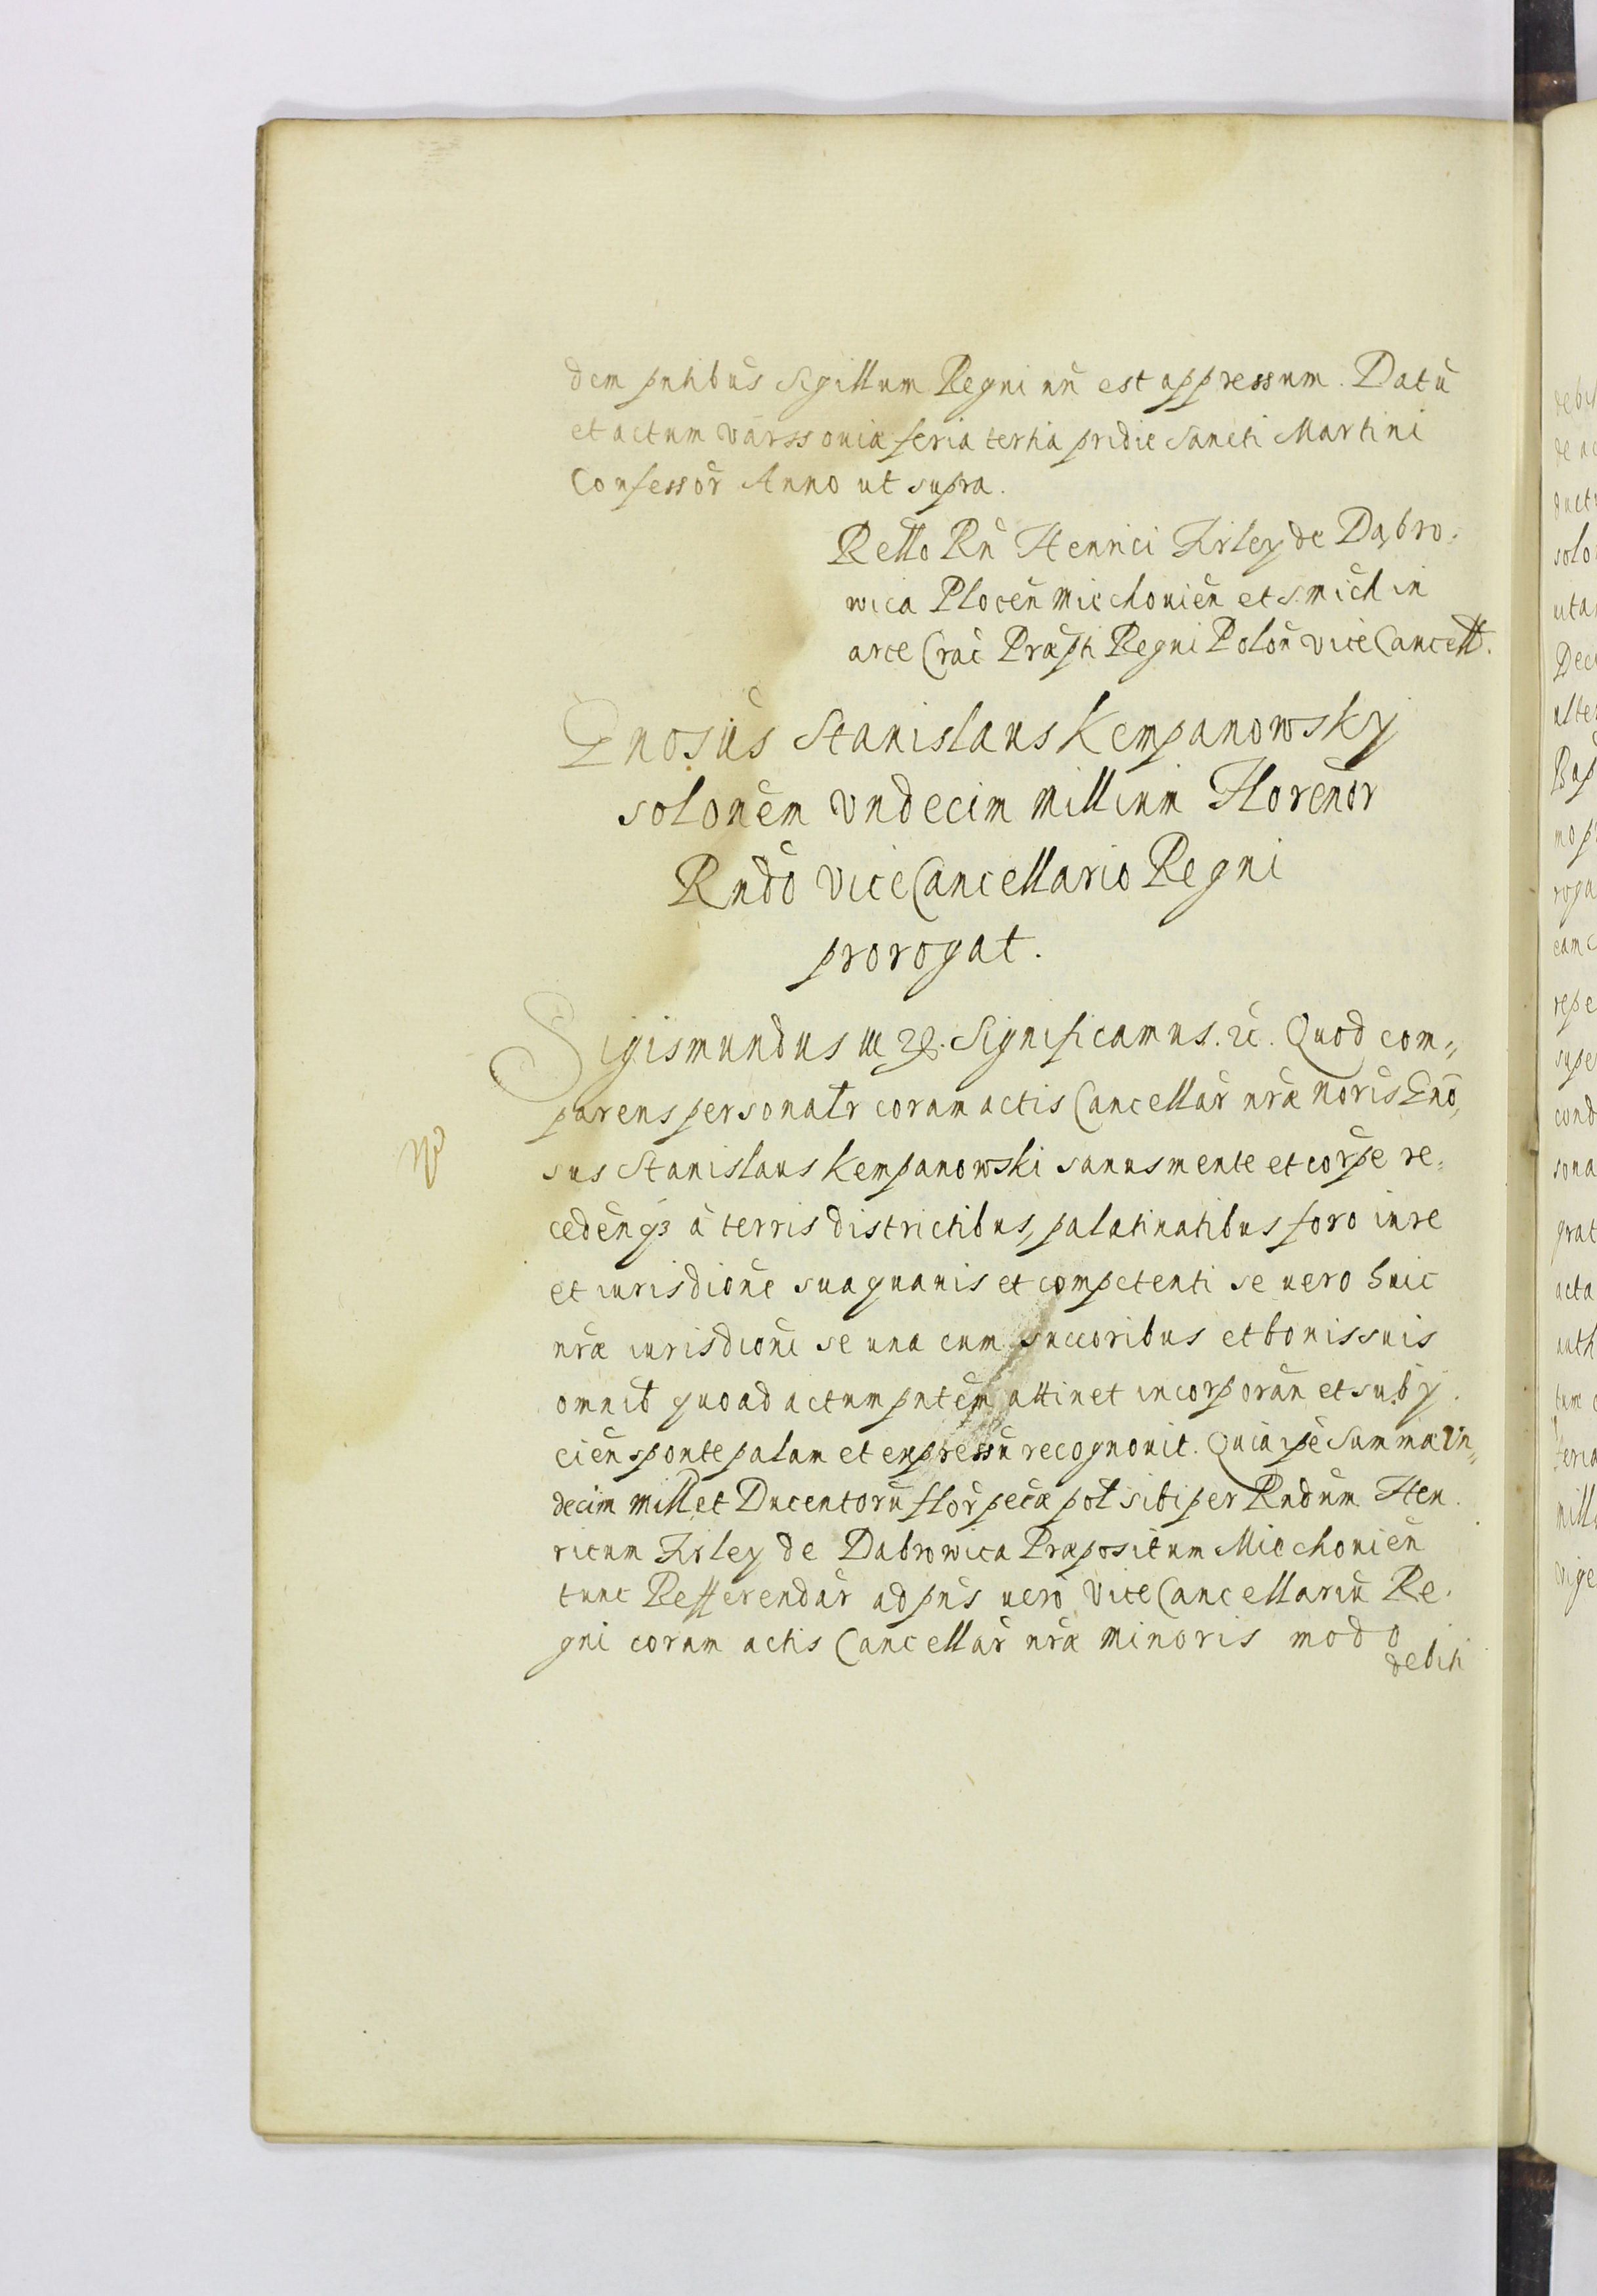 dem pntibūs Sigillum Regni nn̄ est appressum. Datū
et actum Varssouiæ feria tertia pridie Sancti Martini
Confessor̄ Anno ut supra.
Rello Rn̄ Henrici Firley de Dąbro-
wica Plocen̄ Miechouien̄ et S. Mich in
arce Crac̄ Præpti Regni Polon̄ ViceCancell.
Gnosus Stanislaus Kempanowsky
solonem Vndecim Millium Florenor
Rndo ViceCancellario Regni
prorogat.
Sigismundus III Significamus. Quod com-
parens personalr coram actis Cancellar̄ nræ Noris Gno-
sus Stanislaus Kempanowski sanus mente et corpe re-
cedenq3 à terris districtibus, palatinatibus foro iure
et iurisdione sua quauis et competenti se uero huic
nræ iurisdioni se una cum succoribus et bonis suis
omnib quoad actum pntem attinet incorporan̄ et suby-
cien̄ sponte palam et expressū recognouit. Quia ipe Summæ Vn-
decim Mill et Ducentorū flor̄ pecæ pol sibi per Rndum Hen-
ricum Firley de Dabrowica Præpositum Miechouien̄
tunc Refferendar̄ ad pn̄s uero ViceCancellariū Re-
gni coram actis Cancellar̄ nræ Minoris modo
debiti